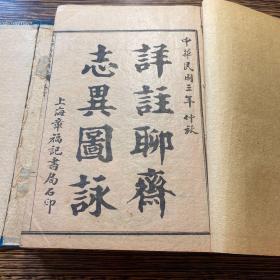 中華民國三年仲秋
詳註聊齋
志異圖詠
上海章福記書局石印